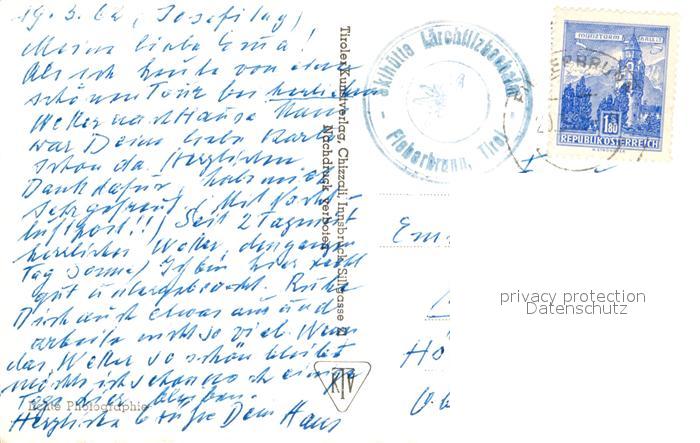 19.3.62 (Josefitag)
Meine liebe Erna!
Als ich heute von einer
schönen Tour bei herrlichem
Wetter nach Hause kam
war Deine liebe Karte
schon da. Herzlichen
Dank dafür, habe mich
sehr gefreut. (Mit
Luftpost!!) Seit 2 Tagen ist
herrliches Wetter, den ganzen
Tag Sonne. Ich bin hier recht
gut untergebracht. Ruhe
Dich auch etwas aus und
arbeite nicht so viel. Wenn
das Wetter so schön bleibt
möchte ich schon noch einige
Tage hier bleiben.
Herzliche Grüße Dein Hans
Echte Photographie
Tiroler Kunstverlag, Chizzali, Innsbruck, Sillgasse 21
Nachdruck verboten
KTV
Skihütte Lärchfilzhochalm
Fieberbrunn, Tirol
MÜNZTURM HALL i. T.
S
1.80
REPUBLIK ÖSTERREICH
privacy protection
Datenschutz